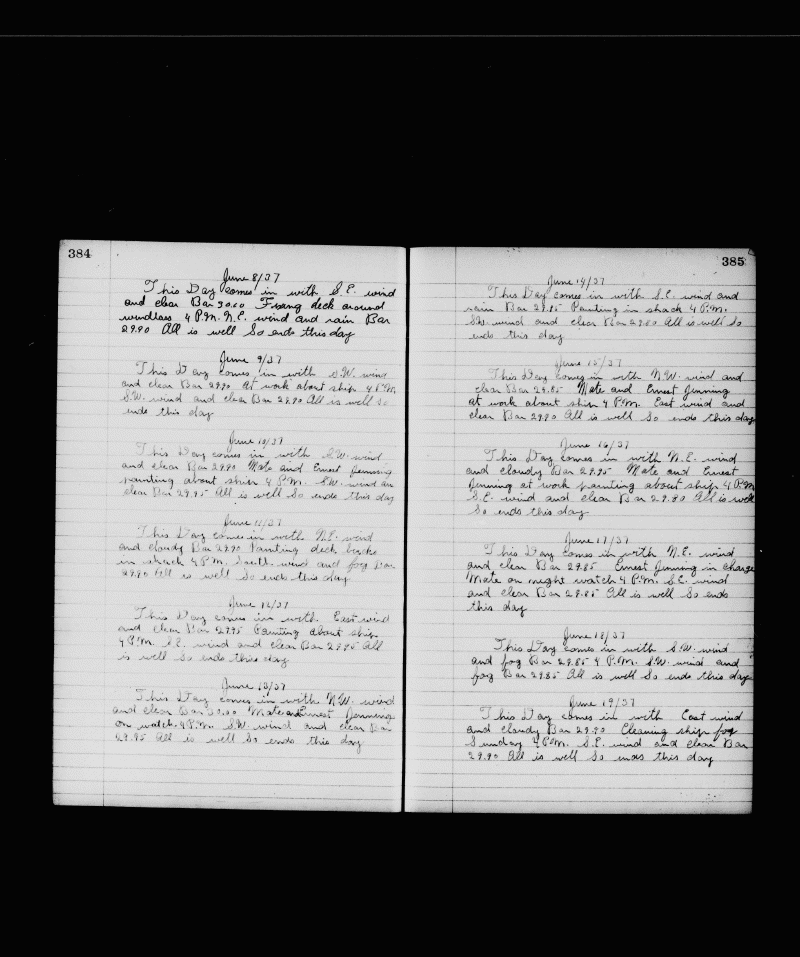 384
June 8/37
This Day comes in with S.E. wind
and clear Bar 30.00 Fixang deck around
windlass 4 P.M. N.E. wind and rain Bar
29.90 All is well So ends this day
June 9/37
This Day comes in with S.W. wind
and clear Bar 29.90 At work about ship 4 P.M.
S.W. wind and clear Bar 29.90 All is well So
ends this day
June 10/37
This Day comes in with S.W. wind
and clear Bar 29.90 Mate and Ernest Jenning
painting about ship 4 P.M. S.W. wind an
clear Bar 29.95 All is well So ends this day
June 11/37
This Day comes in with N.E. wind
and cloudy Bar 29.90 Painting deck
in shack 4 P.M. South wind and fog Bar
29.90 All is well So ends this day
June 12/37
This Day comes in with East wind
and clear Bar 29.95 Painting about ship
4 P.M. S.E. wind and clear Bar 29.95 All
is well So ends this day
June 13/37
This Day comes in with N.W. wind
and clear Bar 30.00 Mate and Ernest Jenning
on watch 4 P.M. S.W. wind and clear Bar
29.95 All is well So ends this day
385
June 14/37
This Day comes in with S.E. wind and
rain Bar 29.85 Painting in shack 4 P.M.
S.W. wind and clear Bar 29.80 All is well So
ends this day
June 15/37
This Day comes in with N.W. wind and
clear Bar 29.85 Mate and Ernest Jenning
at work about ship 4 P.M. East wind and
clear Bar 29.90 All is well So ends this day
June 16/37
This Day comes in with N.E. wind
and cloudy Bar 29.95 Mate and Ernest
Jenning at work painting about ship 4 P.M.
S.E. wind and clear Bar 29.80 All is well
So ends this day
June 17/37
This Day comes in with N.E. wind
and clear Bar 29.85 Ernest Jenning in charge
Mate on night watch 4 P.M. S.E. wind
and clear Bar 29.85 All is well So ends
this day
June 18/37
This Day comes in with S.W. wind
and fog Bar 29.85 4 P.M. S.W. wind and
fog Bar 29.85 All is well So ends this day
June 19/37
This Day comes in with East wind
and cloudy Bar 29.90 Cleaning ship for
Sunday 4 P.M. S.E. wind and clear Bar
29.90 All is well So ends this day